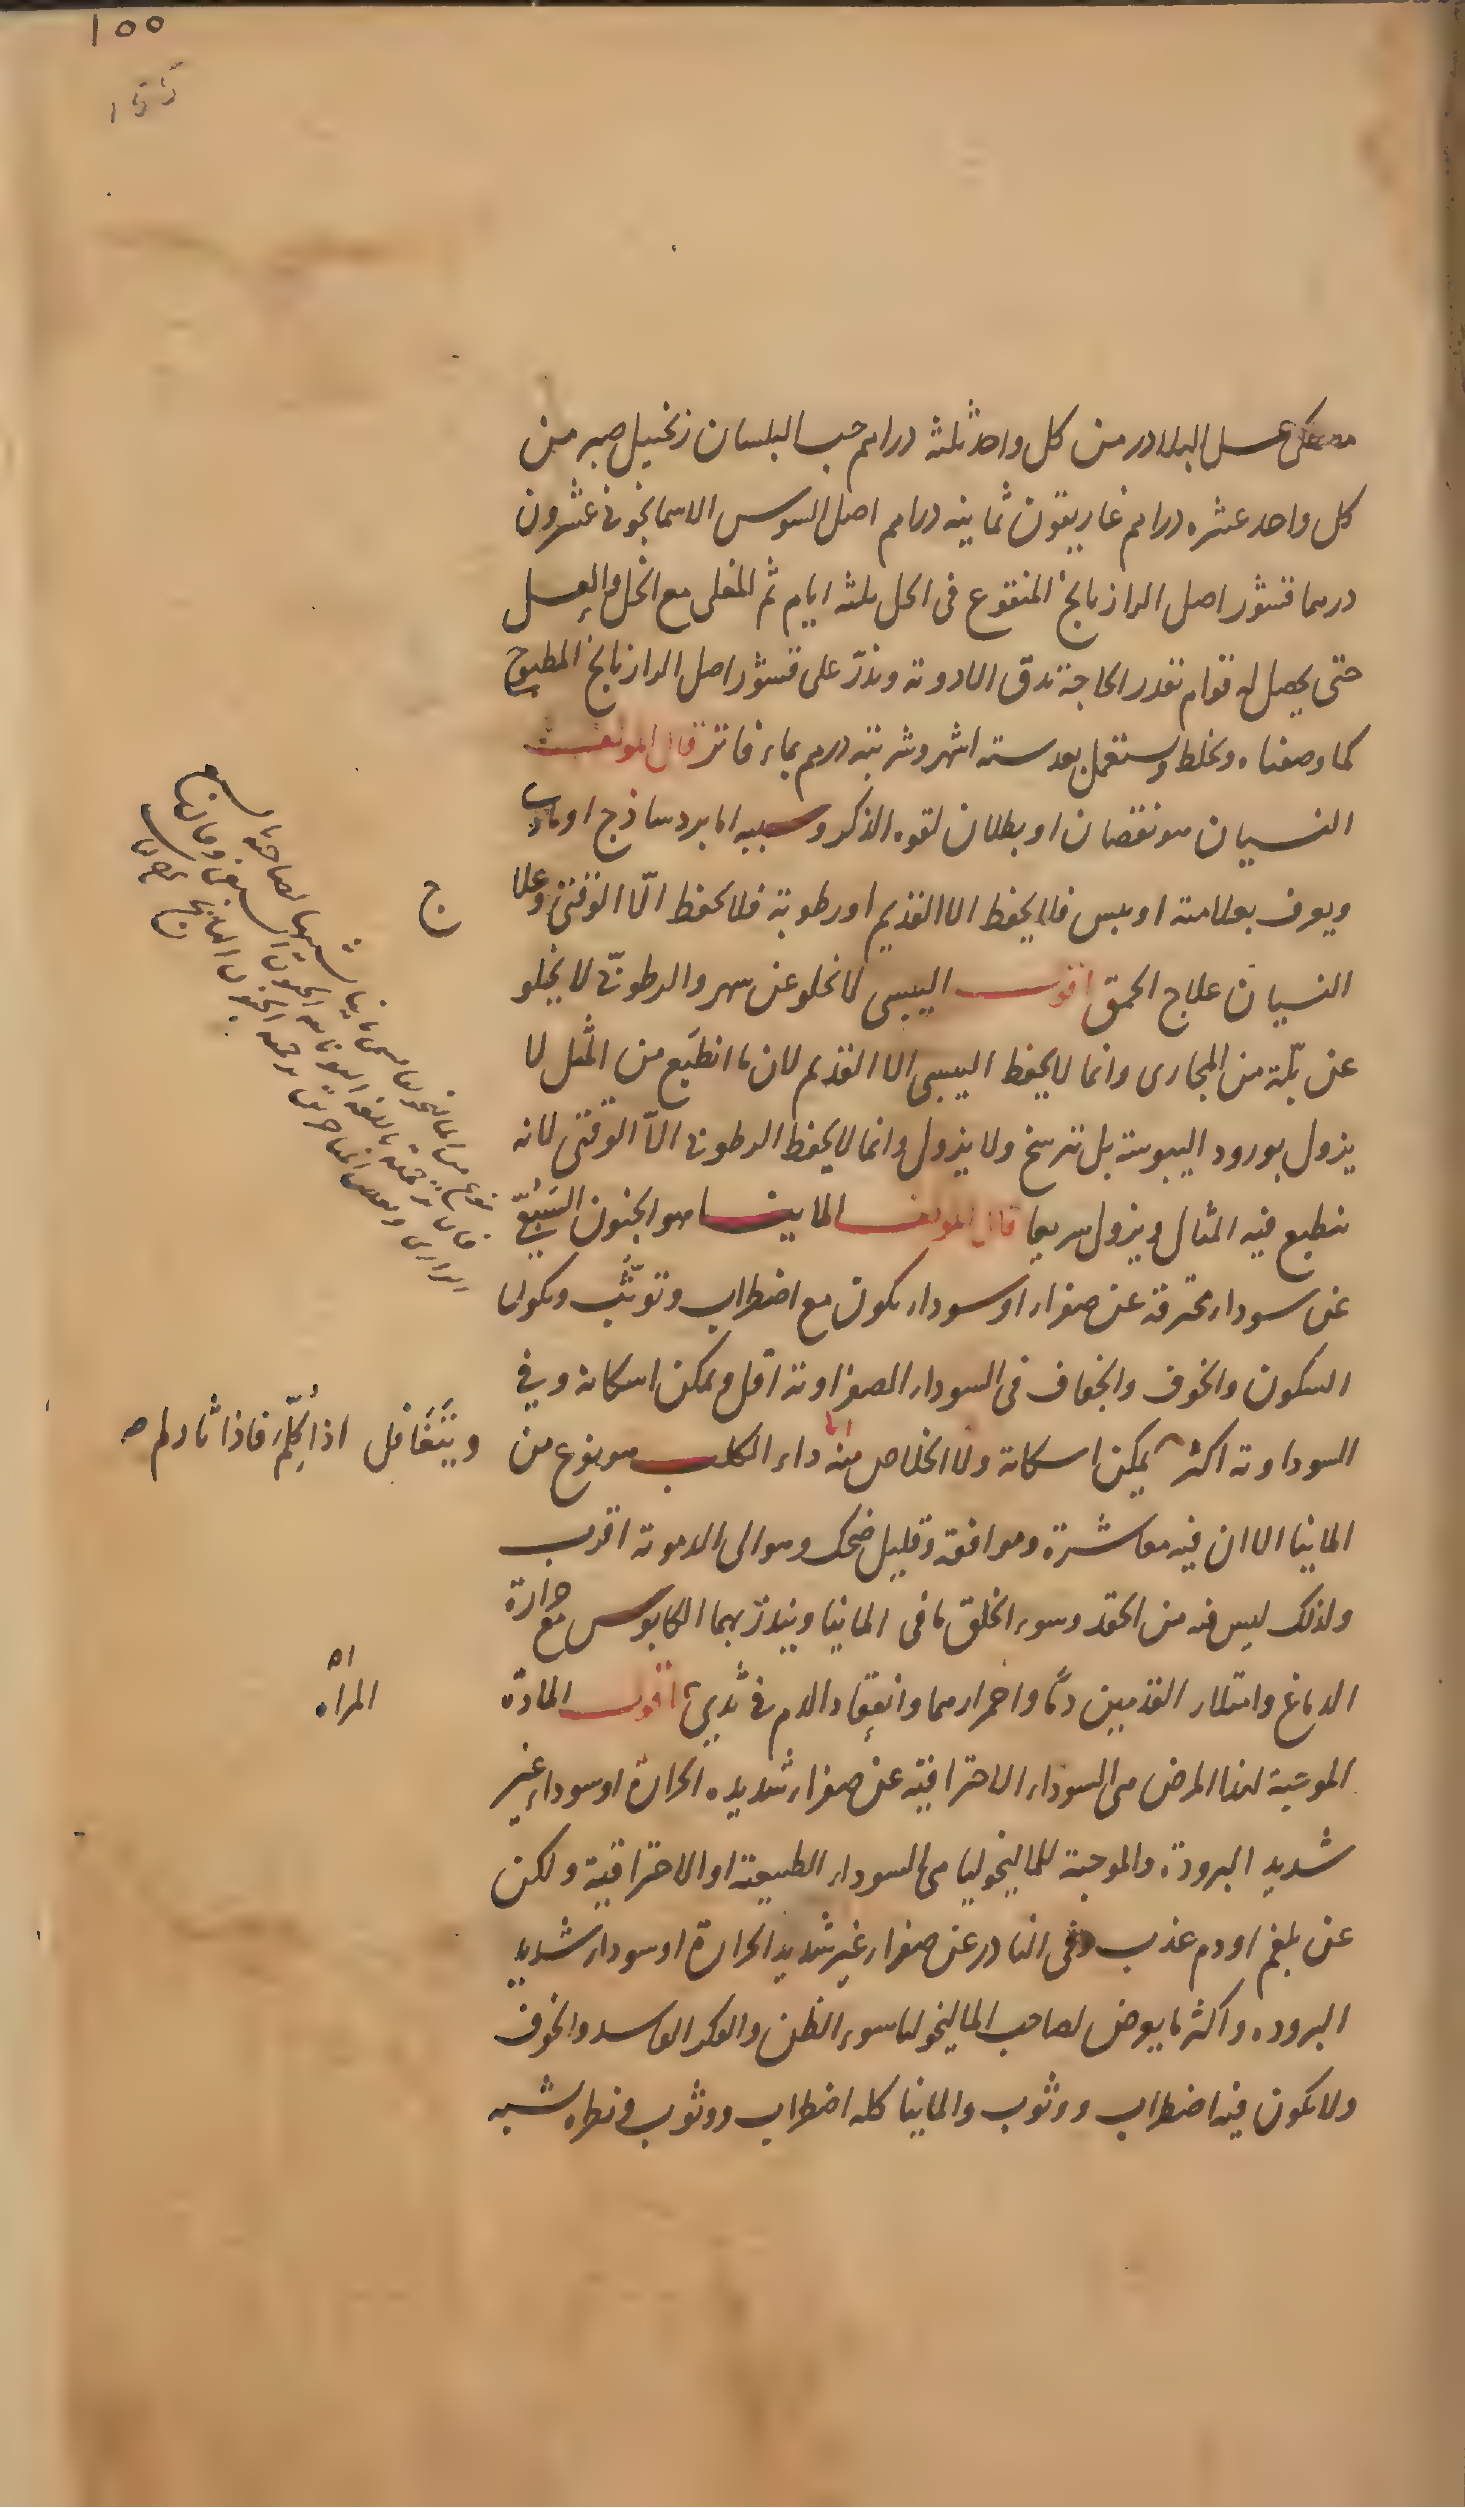 ١٥٥
مصطكى عسل البلادر من كل واحد ثلثة دراهم حب البلسان زنجبيل صبر من
كل واحد عشره دراهم غاريقون ثمانيه دراهم اصل السوس الاسمانجونى عشرون
درهما قشور اصل الرازيانج المنقوع فى الخل ثلثه ايام ثم المغلى مع الخل والعسل
حتى يحصل له قوام بقدر الحاجة تدق الادوية وتذرّ على قشور اصل الرازيانج المطبوخ
كما وصفناه ويخلط ويستعمل بعد سته اشهر وشربته درهم بماء فاتر قال المولف
النسيان هو نقصان او بطلان لقوه الذكر وسببه اما برد ساذج او مادى
ويعرف بعلامته او يبس فلا يحفظ الا القديم او رطوبة فلا يحفظ الّا الوقتى وعلاج
النسيان علاج الحمق اقول اليبسى لا يخلو عن سهر والرطوبّى لا يخلو
عن بلّة من المجارى وانما لا يحفظ اليبسى الا القديم لان ما انطبع من المثل لا
يزول بورود اليبوسة بل ترسخ ولا يزول وانما لا يحفظ الرطوبى الاّ الوقتى لانه
ينطبع فيه المثال ويزول سريعا قال المولف المانيا هو الجنون السَبُعِىّ
عن سوداء محترقة عن صفراء او سوداء يكون مع اضطراب وتوثّب ويكون
السكون والخوف والجفاف فى السوداء الصفراوية اقل ويمكن اسكاته وفى
السوداوية اكثر يمكن اسكاته ولا الخلاص منه داء الكلب هو نوع من
ويَتَغَافل اذا كُلِّم فاذا ثار لم
المانيا الا ان فيه معاشرة وموافقة وقليل ضحك وهو الى الدموية اقرب
ولذلك ليس فيه من الحقد وسوء الخلق ما فى المانيا وينذر بهما الكابوس مع حرارة
الدماغ وامتلاء القدمين دمًا واحمرارهما وانعقاد الدم فى ثديى اقول المادّة
المراه
الموجبة لهذا المرض هى السوداء الاحتراقيّه عن صفراء شديده الحرارة او سوداء غير
شديد البرودة والموجبة للماليخوليا هى السوداء الطبيعية او الاحتراقية ولكن
عن بلغم او دم عذب وفى النادر عن صفراء غير شديد الحرارة او سوداء شديد
البروده واكثر ما يعرض لصاحب الماليخوليا سوء الظن والفكر الفاسد والخوف
ولا يكون فيه اضطراب ووثوب والمانيا كله اضطراب ووثوب ونظره شبه